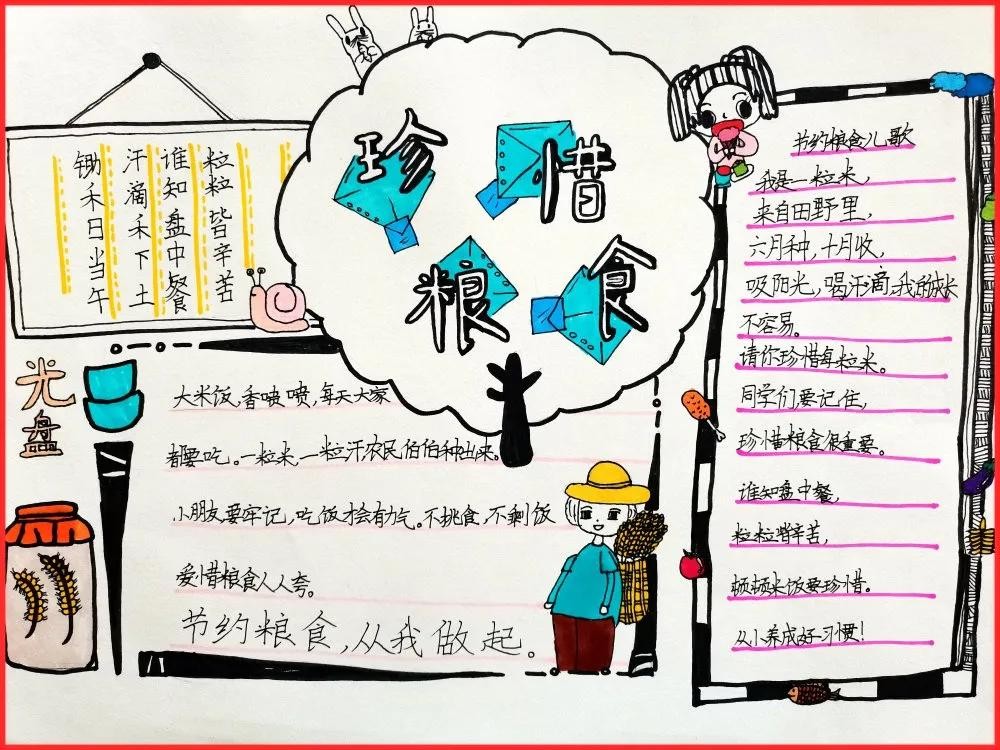 珍惜粮食
锄禾日当午
汗滴禾下土
谁知盘中餐
粒粒皆辛苦
光盘
大米饭,香喷喷,每天大家
都要吃。一粒米,一粒汗农民伯伯种出来。
小朋友要牢记,吃饭才会有力气。不挑食,不剩饭
爱惜粮食人人夸。
节约粮食,从我做起。
节约粮食儿歌
我是一粒米,
来自田野里,
六月种,十月收,
吸阳光,喝汗滴,我的成长
不容易。
请你珍惜每粒米。
同学们,要记住,
珍惜粮食很重要。
谁知盘中餐,
粒粒皆辛苦,
顿顿米饭要珍惜。
从小养成好习惯!